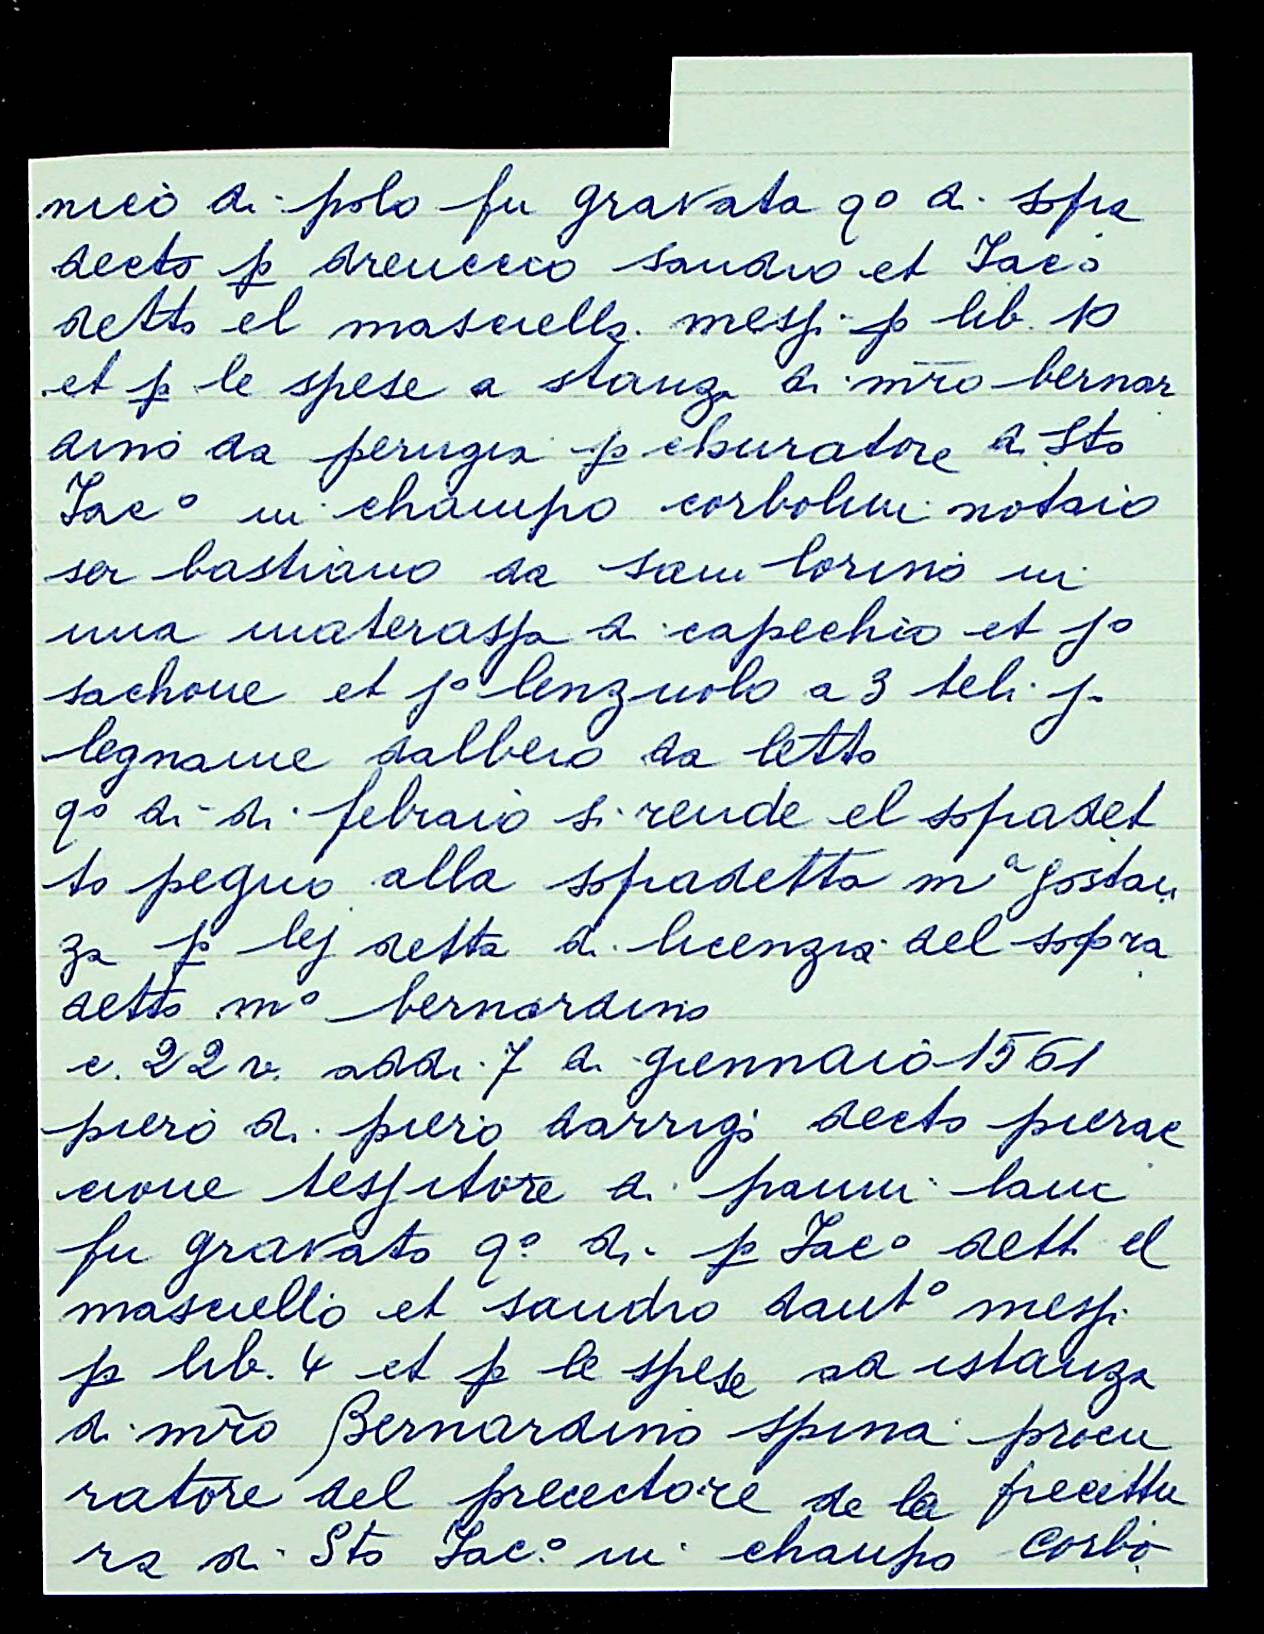 nicò di polo fu gravata qo di sopra
decto p dreuccio sandro et Jaco
detto el masciello messi p lib. 10
et p le spese a stanza di mro bernar
dino da perugia p churatore di Sto
Jaco in champo corbolini notaio
ser bastiano da sam lorino in
una materassa di capechio et jo
sachone et jo lenzuolo a 3 teli j.
legname dalbero da letto
qo di di febraio si rende el sopradet
to pegno alla sopradetta ma gostan
za p lej detta di licenzia del sopra
detto mo bernardino
c. 22 v. addi 7 di giennaio 1561
piero di piero darrigo decto pierac
cione tessitore di panni lani
fu gravato qo di p Jaco dett. el
masciello et sandro danto messi
p lib. 4 et p le spese ad istanza
di mro Bernardino spina procu
ratore del precectore de la precettu
ra di Sto Jaco in champo Corbo